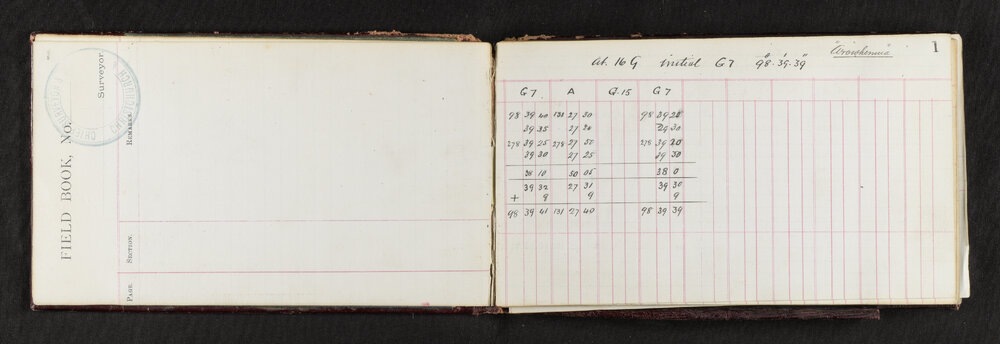 FIELD BOOK, NO.
Surveyor
REMARKS.
SECTION.
PAGE.
1
At 16 G initial G7 98·39·39
G7 A G.15 G7
98 39 40 131 27 30 98 39 25
39 35 27 39 30
278 39 25 27 278 39
39 30 27 25 39 30
10 50 05 38 0
39 32 27 31 39 30
+ 9 9 9
98 39 41 131 27 40 98 39 39